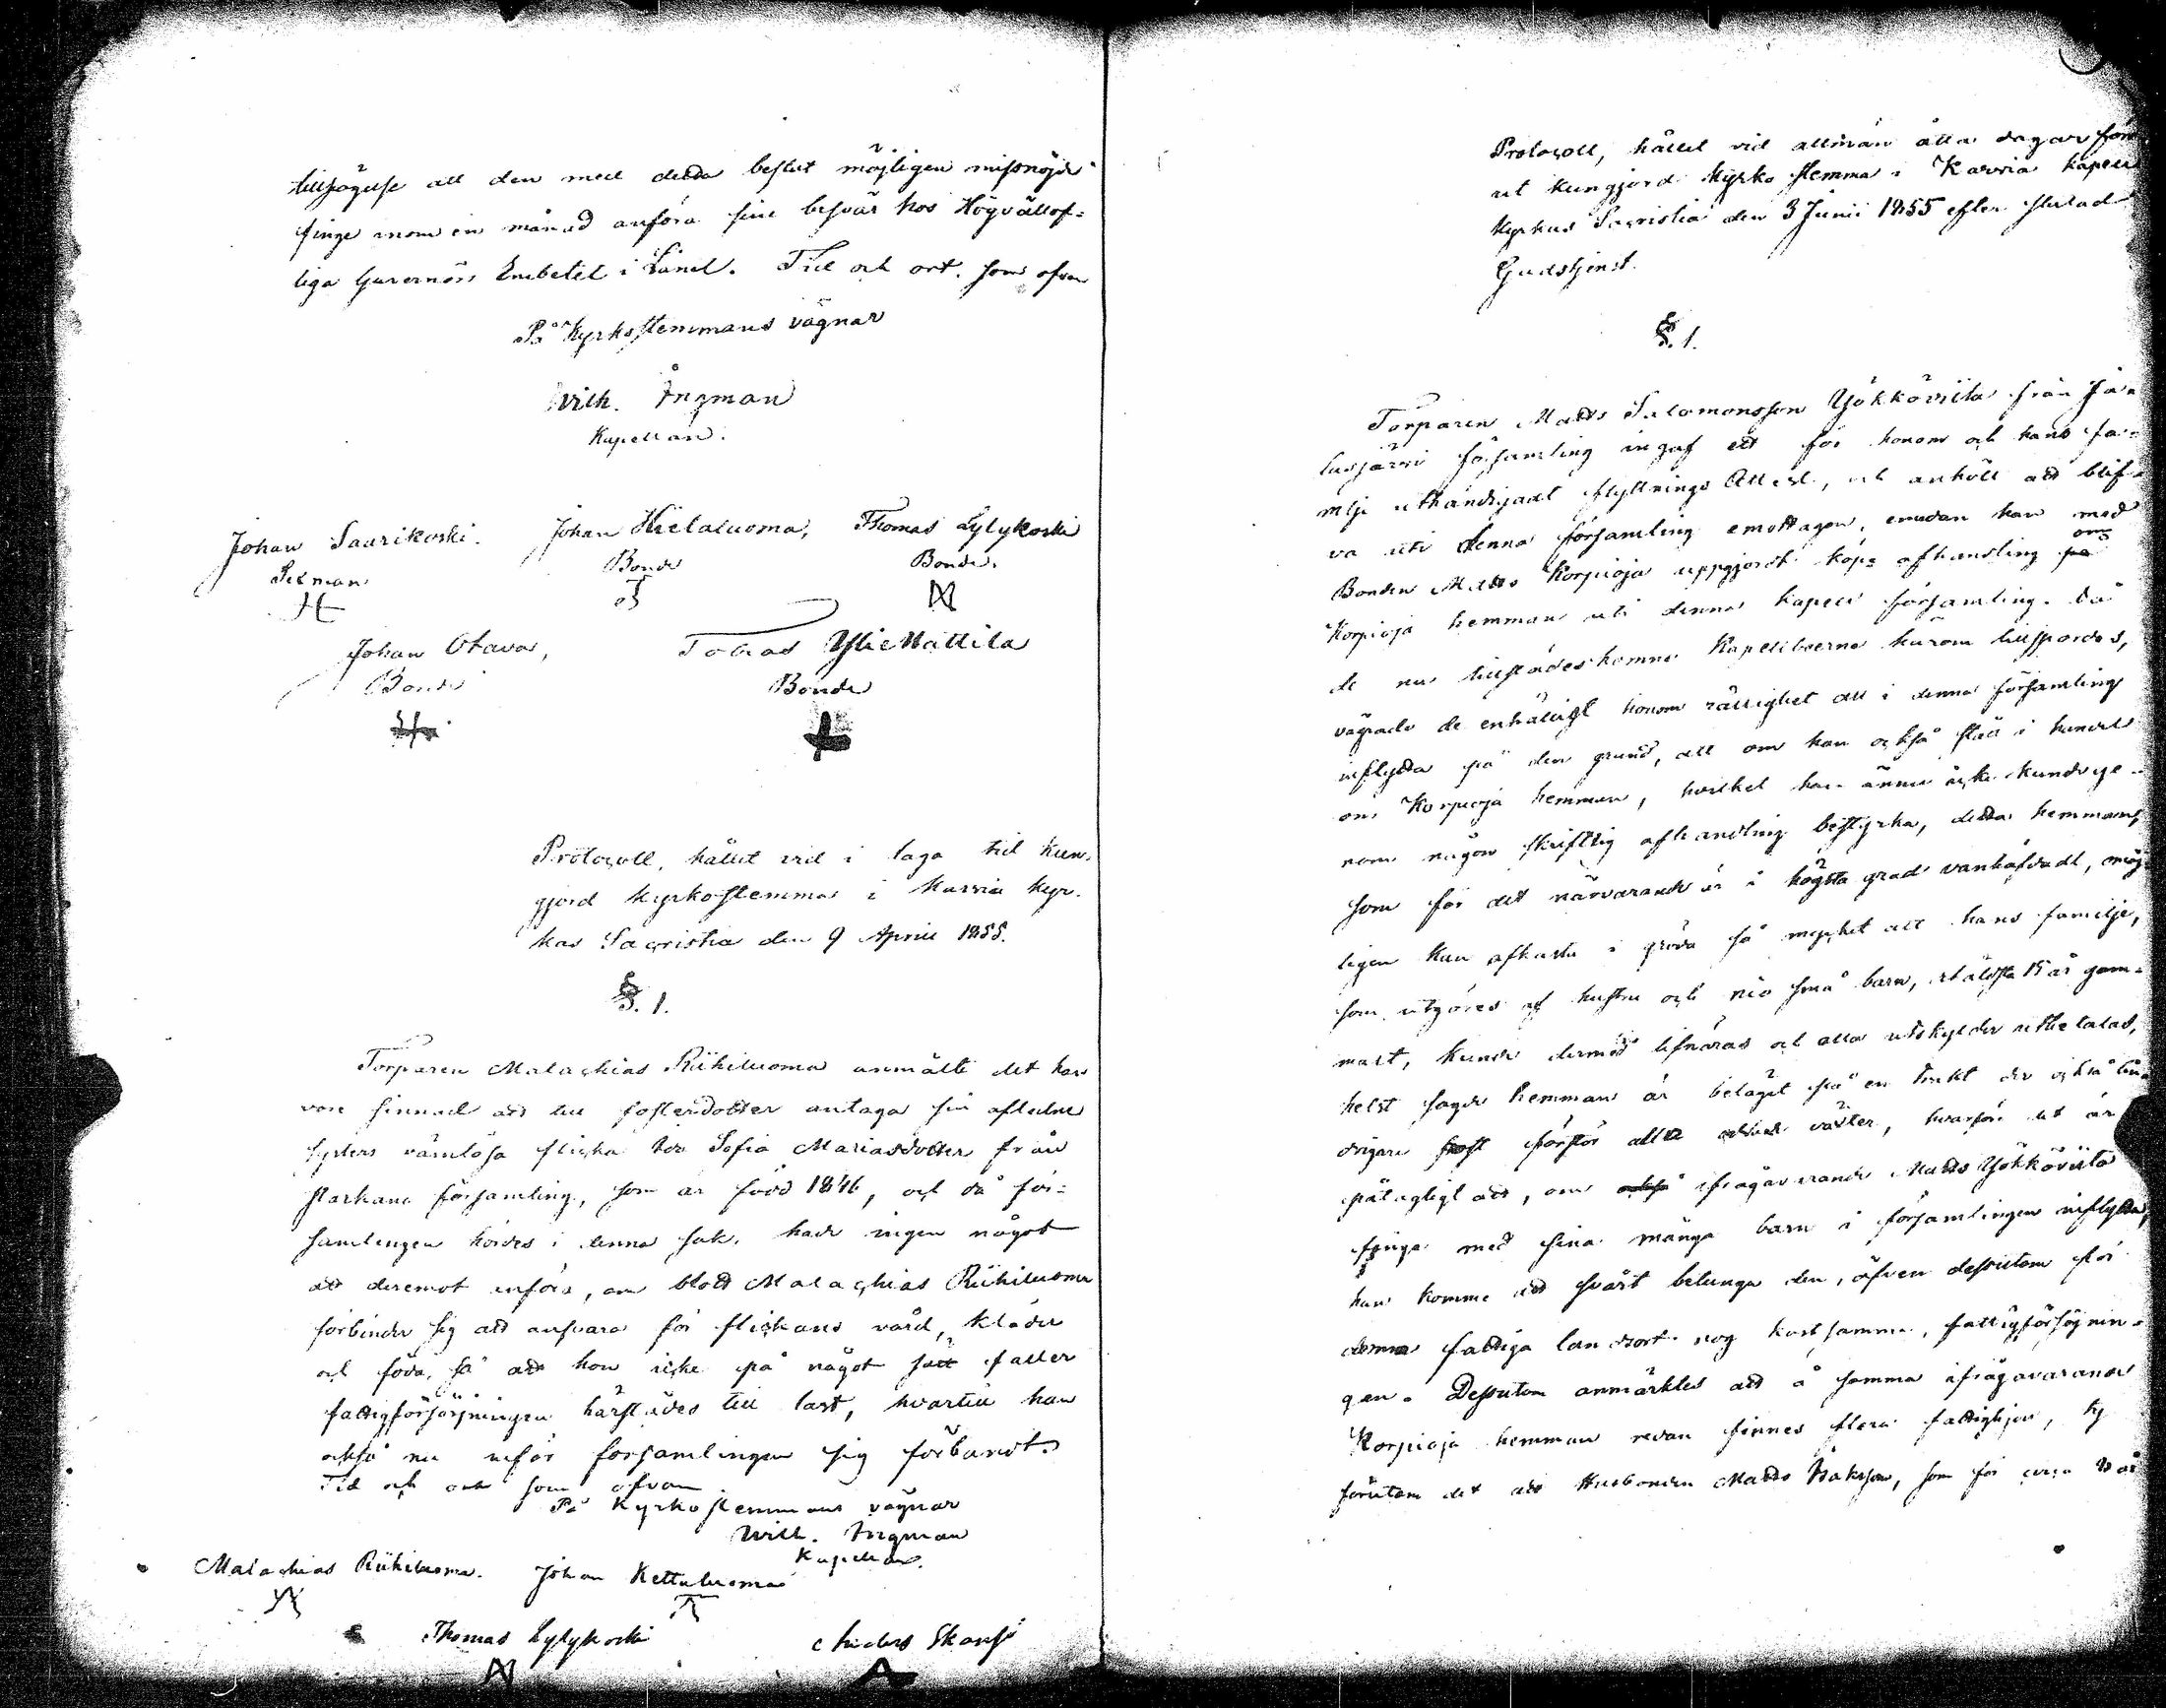 tillsägelse att den med detta beslut möjligen missnöjde
finge inom en månad anföra sine besvär hos Högvällof-
liga Guvernörs Embetet i Länet. Tid och ort som ofvan
På Kyrkostemmans vägnar
Wilh. Ingman
Kapellan.
Johan Saarikoski. Johan Hietaluoma, Thomas Lylykoski
Sexman Bonde Bonde.
Johan Otava, Tobias YlieMattila
Bonde Bonde
Protocoll, hållit vid i laga tid kun-
gjord Kyrkostemma i Karvia Kyr-
kas Sacristia den 9 April 1855.
§. 1.
Torparen Malachias Riihiluoma anmälte det han
vore sinnad att till fosterdotter antaga sin aflidne
systers värnlösa flicka Sofia Mariasdotter från
Parkano församling, som är född 1846, och då för-
samlingen hördes i denna sak, hade ingen något
att deremot införa, om blott Malachias Riihiluoma
förbinder sig att ansvara för flickans vård, kläder
och föda, så att hon icke på något sätt faller
fattigförsörjningen härstädes till last, hvartill han
också nu inför församlingen sig förbandt.
Tid och ort som ofvan
På Kyrkostemmans vägnar
Wilh. Ingman
Kapellan.
Malachias Riihiluoma. Johan Kettuluoma
Thomas Lylykoski Anders Skansi
Protocoll, hållit vid allmän åtta dagar för-
ut kungjord Kyrko stemma i Karvia Kapell
Kyrkas Sacristia den 3 Junii 1855 efter slutad
Gudstjenst.
§. 1.
Torparen Matts Salomonsson Yökköviita från Ja-
lasjärvi församling ingaf ett för honom och hans fa-
milje uthändigadt flyttnings Attest, och anhöll att blif-
va uti denna församling emottagen, emedan han med
Bonden Matts Korpioja uppgjordt köps afhandling på om
Korpioja hemman uti denna Kapell församling. Då
de nu tillstädeskomne Kapelliboerne härom tillspordes,
vägrade de enhälligt honom rättighet att i denna församling
inflytta på den grund, att om han också stått i handel
om Korpioja hemman, hvilket han ännu icke kunde ge-
nom någon skriftlig afhandling bestyrka, detta hemmans
som för det närvarande är i högsta grad vanhäfdadt, möj-
ligen kan afkasta i gröda så mycket att hans familje,
som utgöres af hustru och nio små barn, det äldsta 15 år gam-
malt, kunde dermed lifnäras och alla utskylder utbetalas,
helst sagde hemman är beläget på en trakt der också lin-
drigare frost förstör alla växter, hvarföre det är
påtagligt att, om också ifrågavarande Matts Yökköviita
finge med sina många barn i församlingen inflytta,
han komme att svårt betunga den, äfven dessutom för
denna fattiga landsort nog kostsamma, fattigförsörjnin-
gen. Dessutom anmärktes att å samma ifrågavarande
Korpioja hemman redan finnes flera fattighjon, ty
förutom det att Husbonden Matts Isaksson, som för circa år